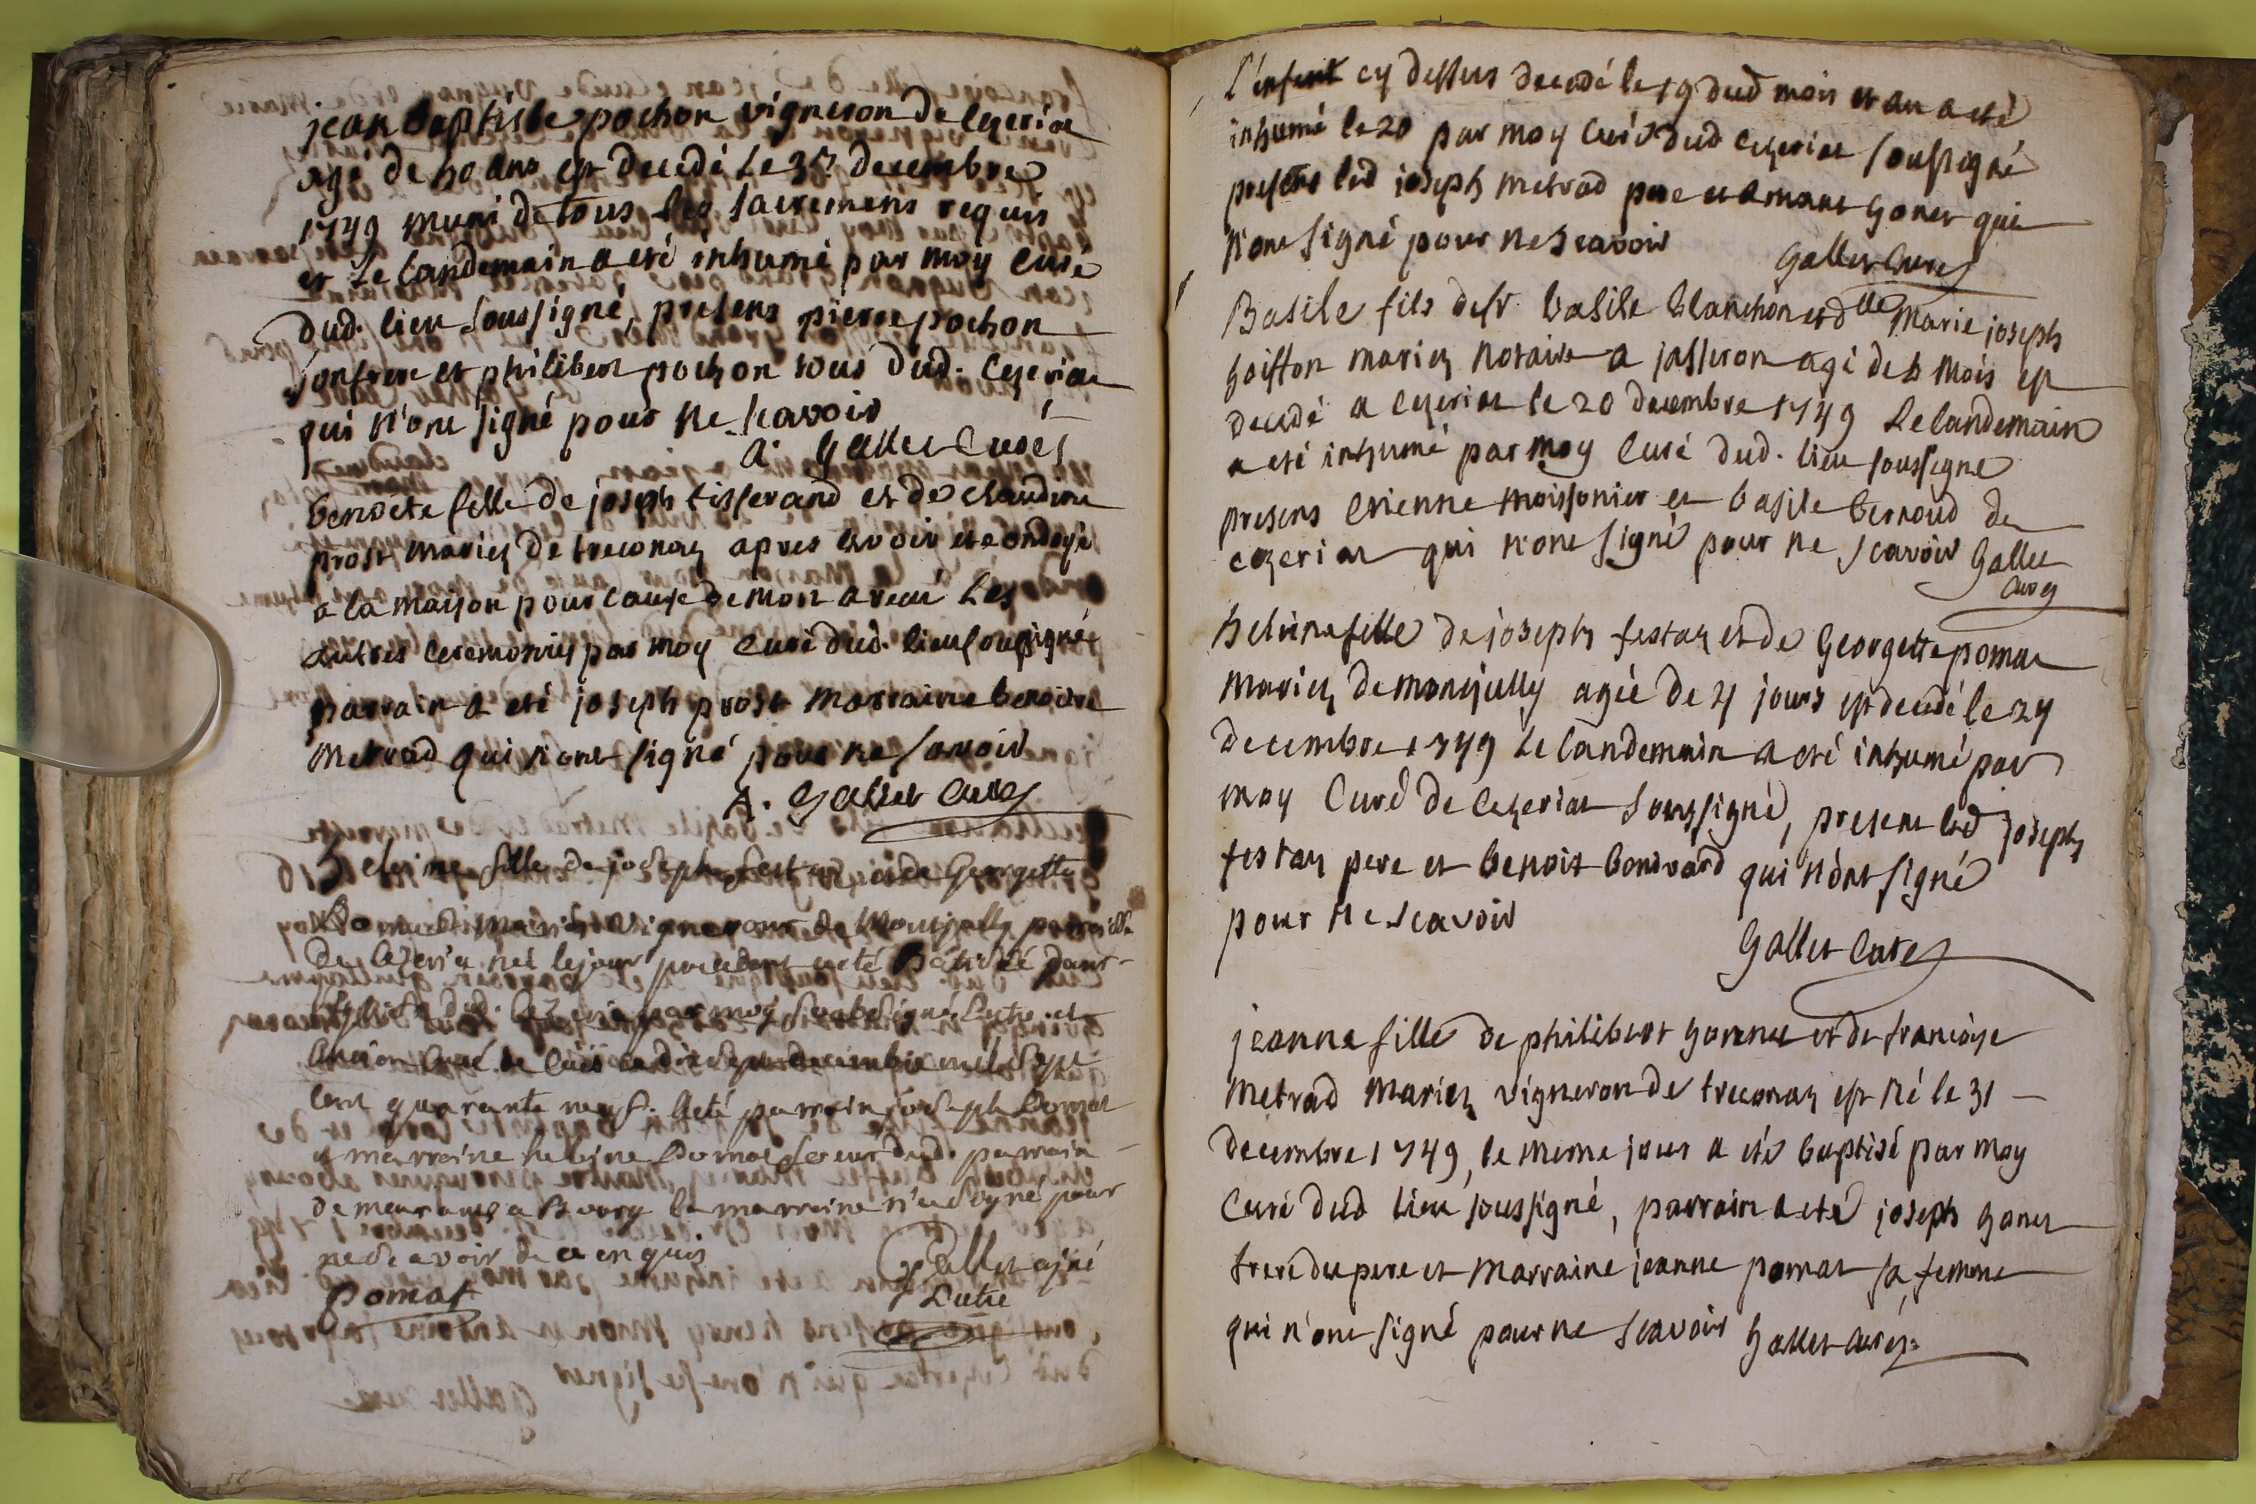 jean baptiste pochon vigneron de Cezeriat
agé de 40 ans est decedé Le 3e decembre
1749 muni de tous les sacremens requis
et Le landemain a eté inhumé par moy curé
dud. lieu soussigné, presens pierre pochon
son frere et philibert pochon tous dud. Cezeriat
qui n'ont signé pour ne scavoir
A. Gallet Curé
benoite fille de joseph tisserand et de claudine
prost mariez de treconaz apres avoir eté ondoyé
a la maison pour cause de mort a recu Les
autres ceremonies par moy curé dud. lieu soussigné
parrain a eté joseph prost marraine benoite
metrad qui n'ont signé pour ne scavoir
A. Gallet Curé
Heleine fille de joseph festaz et de Georgette
Pomat mariés vignerons de Montjully parroisse
de Cezeria neé le jour precedent a eté Batisée dans
l'eglise dud. Cezeria par moy soubsigné Prétre et
ancien curé de ce dix sept decembre mille sept
cent quarante neuf. a eté parrain joseph Pomat
et marraine heleine Pomat soeur dud. parrain
demeurants a Bourg la marraine n'a signé pour
ne scavoir de ce enquis
Gallet ainé
Pomat
Prétre
L'enfent cy dessus decedé le 19 dud mois et an a eté
inhumé le 20 par moy Curé dud Cezeriat soussigné
presens led joseph metrad pere et amant gonet qui
n'ont signé pour ne scavoir
Gallet Curé
Basile fils de sr. basile blanchon et dlle marie joseph
goiffon mariez notaire a jasseron agé de 6 mois est
decedé a Cezeriat le 20 decembre 1749 Le landemain
a eté inhumé par moy Curé dud. lieu soussigné
presens etienne moissonier et basile bernoud de
cezeriat qui n'ont signé pour ne scavoir Gallet
Curé
heleine fille de joseph festaz et de Georgette pomat
mariez de montjully agée de 4 jours est decedé le 24
decembre 1749 Le landemain a eté inhumé par
moy Curé de Cezeriat soussigné, presens led joseph
festaz pere et benoit bonvard qui n'ont signé
pour ne scavoir
Gallet Curé
jeanne fille de philibert gonnet et de francoise
metrad mariez vigneron de treconaz est né le 31
decembre 1749, le meme jour a eté baptisé par moy
Curé dud lieu soussigné, parrain a eté joseph gonet
frere du pere et marraine jeanne pomat sa femme
qui n'ont signé pour ne scavoir Gallet curé